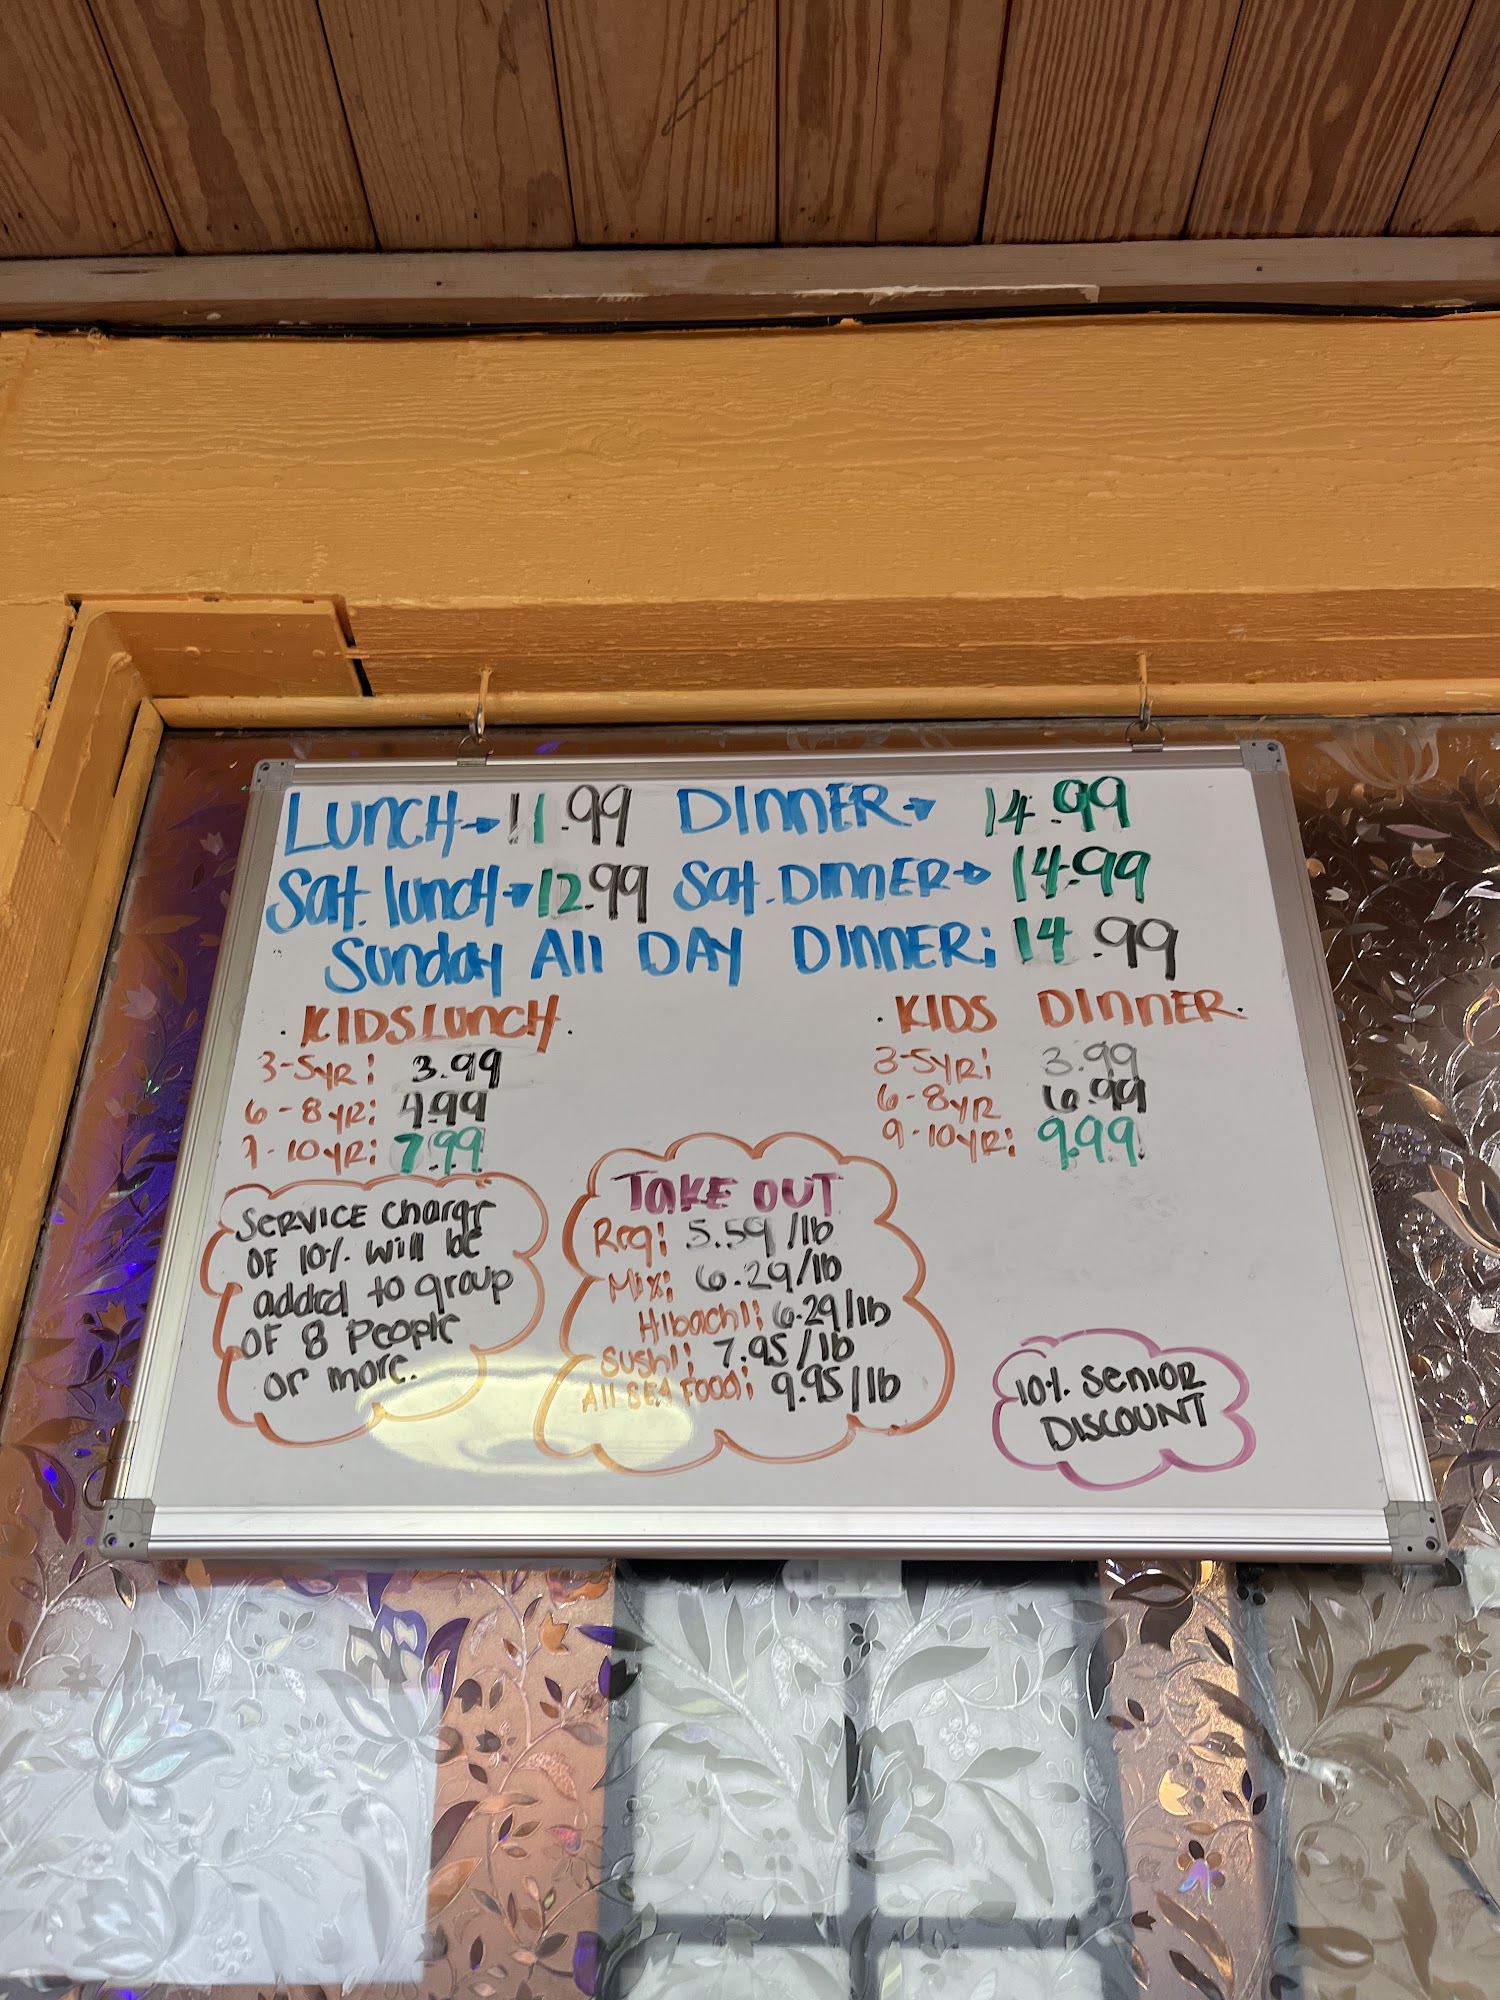 LUNCH→ 11.99 DINNER→ 14.99
Sat. lunch→ 12.99 Sat. DINNER→ 14.99
Sunday All DAY DINNER: 14.99
. KIDS LUNCH .
3-5yR: 3.99
6-8yR: 4.99
9-10yR: 7.99
. KIDS DINNER .
3-5yR: 3.99
6-8yR 6.99
9-10yR: 9.99
SERVICE charge
OF 10% will be
added to group
OF 8 People
or more.
TAKE OUT
Reg: 5.59/lb
Mix: 6.29/lb
HibachI: 6.29/lb
SushI: 7.95/lb
All SEA FOOD: 9.95/lb
10% SENIOR
DISCOUNT